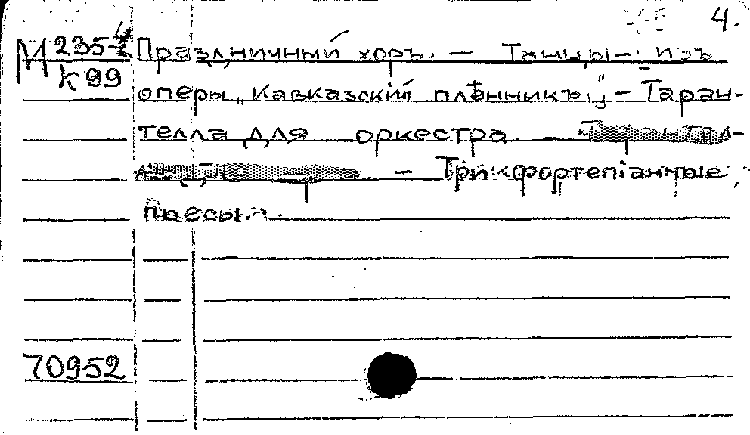 4.
М 235-4 Праздничный хоръ. — Танцы изъ
К 99
оперы „Кавказскій плѣнникъ“. — Таран-
телла для оркестра. —
— Три фортепіанные
пьесы.
70952